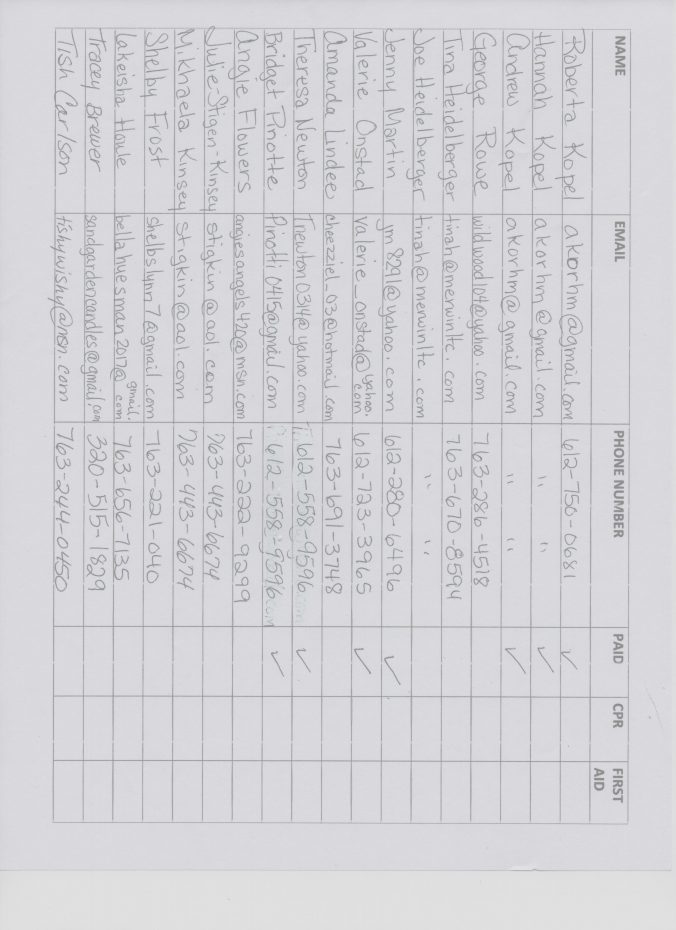 NAME EMAIL PHONE NUMBER PAID CPR FIRST AID
Roberta Kopel akorhm@gmail.com 612-750-0681 ✓
Hannah Kopel akorhm@gmail.com " ✓
Andrew Kopel akorhm@gmail.com " ✓
George Rowe wildwood104@yahoo.com 763-286-4518
Tina Heidelberger tinah@merwinltc.com 763-670-8594
Joe Heidelberger tinah@merwinltc.com "
Jenny Martin jm8291@yahoo.com 612-280-6496 ✓
Valerie Onstad valerie_onstad@yahoo.com 612-723-3965 ✓
Amanda Lindee cheezziel_03@hotmail.com 763-691-3748
Theresa Newton Tnewton0314@yahoo.com 612-558-9596 ✓
Bridget Pinotte Pinotti0415@gmail.com 612-558-9596 ✓
Angie Flowers angiesangels420@msn.com 763-222-9299
Julie-Stigen-Kinsey stigkin@aol.com 763-443-6674
Mikhaela Kinsey stigkin@aol.com 763-443-6674
Shelby Frost shelbslynn7@gmail.com 763-221-040
Lakeisha Howe bellahuesman2017@gmail.com 763-656-7135
Tracey Brewer sandgardencandles@gmail.com 320-515-1829
Tish Carlson tishywishy@msn.com 763-244-0450